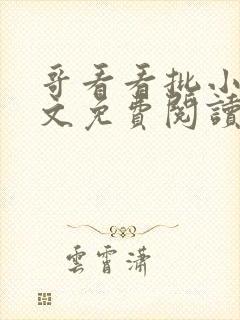 哥看看批小
文免費閱讀
雲霄瀟